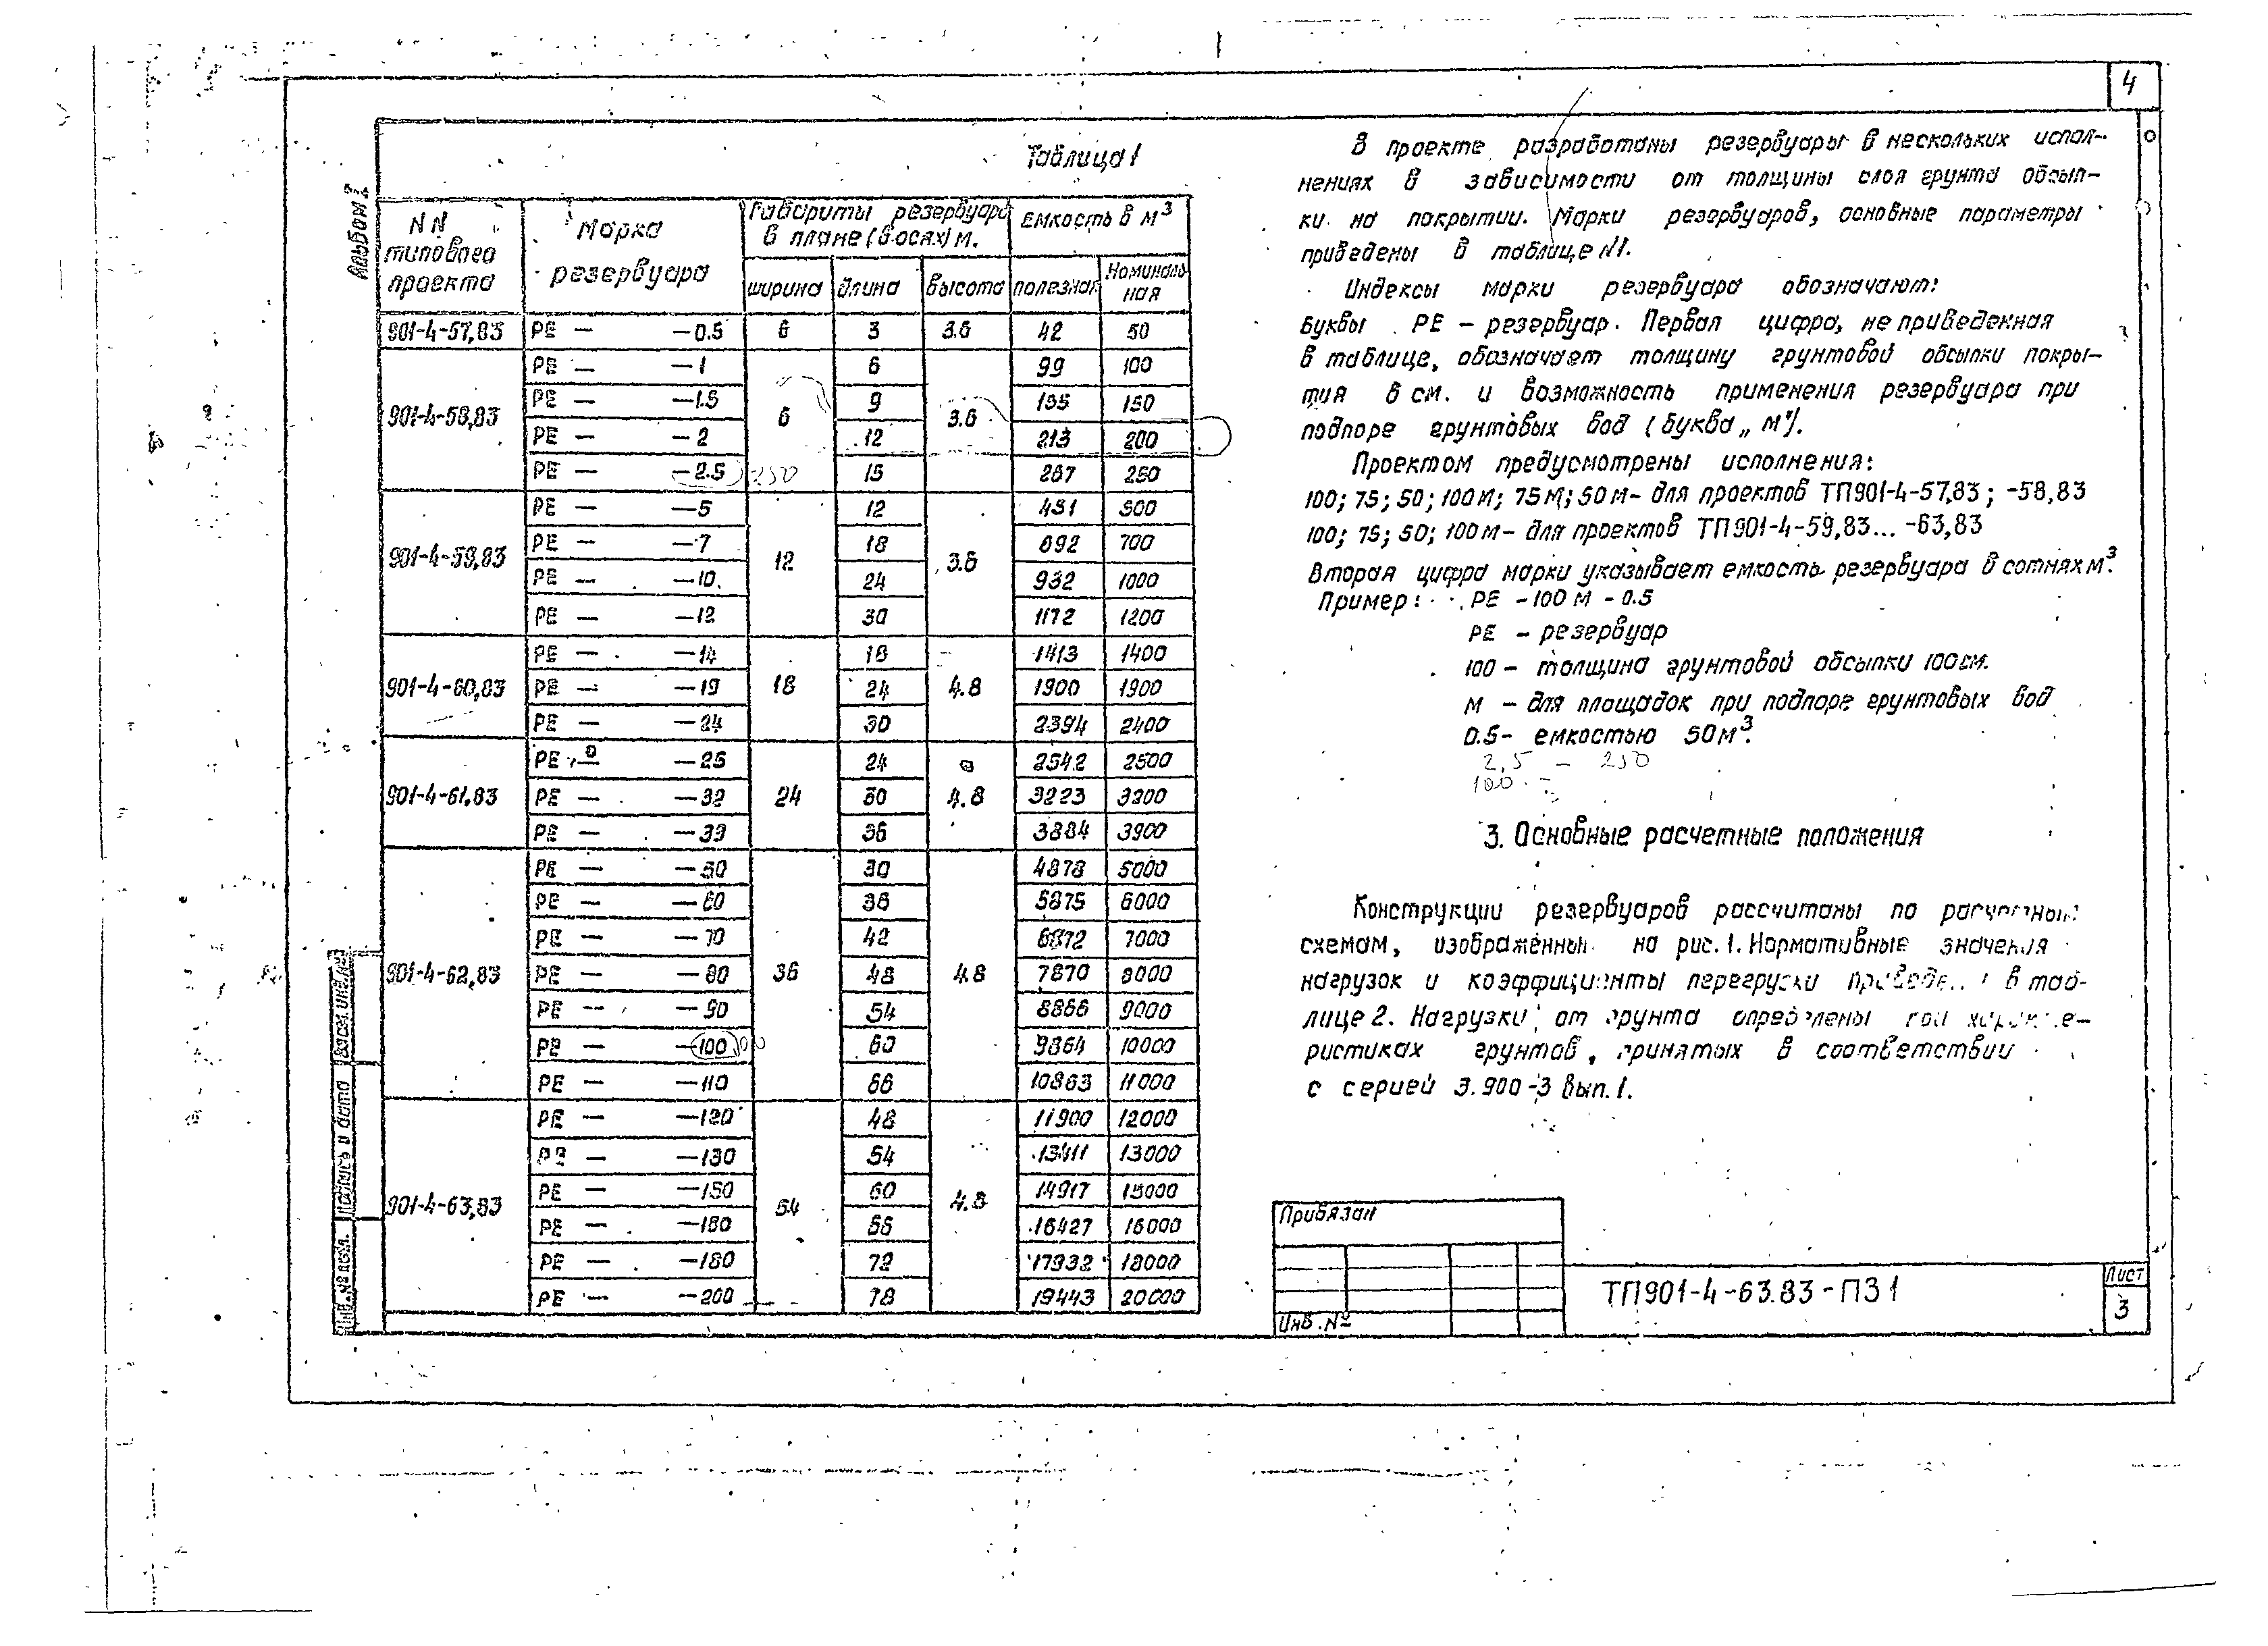 4
Альбом
Таблица 1
NN типового проекта | Марка резервуара | Габариты резервуара в плане (в осях) м. | Емкость в м³
ширина | длина | высота | полезная | Номинальная
901-4-57,83 | РЕ — —0.5 | 6 | 3 | 3.6 | 42 | 50
901-4-58,83 | РЕ — —1 | 6 | 6 | 3.6 | 99 | 100
РЕ — —1.5 | 9 | 155 | 150
РЕ — —2 | 12 | 213 | 200
РЕ — —2.5 250 | 15 | 267 | 250
901-4-59,83 | РЕ — —5 | 12 | 12 | 3.6 | 451 | 500
РЕ — —7 | 18 | 692 | 700
РЕ — —10 | 24 | 932 | 1000
РЕ — —12 | 30 | 1172 | 1200
901-4-60,83 | РЕ — —14 | 18 | 18 | 4.8 | 1413 | 1400
РЕ — —19 | 24 | 1900 | 1900
РЕ — —24 | 30 | 2394 | 2400
901-4-61,83 | РЕ — —25 | 24 | 24 | 4.8 | 2542 | 2500
РЕ — —32 | 30 | 3223 | 3200
РЕ — —39 | 36 | 3884 | 3900
901-4-62,83 | РЕ — —50 | 36 | 30 | 4.8 | 4878 | 5000
РЕ — —60 | 36 | 5875 | 6000
РЕ — —70 | 42 | 6872 | 7000
РЕ — —80 | 48 | 7870 | 8000
РЕ — —90 | 54 | 8866 | 9000
РЕ — —100 | 60 | 9864 | 10000
РЕ — —110 | 66 | 10863 | 11000
901-4-63,83 | РЕ — —120 | 54 | 48 | 4.8 | 11900 | 12000
РЕ — —130 | 54 | 13411 | 13000
РЕ — —150 | 60 | 14917 | 15000
РЕ — | 66 | 16427 | 16000
РЕ — —180 | 72 | 17932 | 18000
РЕ — —200 | 78 | 19443 | 20000
В проекте разработаны резервуары в нескольких испол-
нениях в зависимости от толщины слоя грунта обсып-
ки на покрытии. Марки резервуаров, основные параметры
приведены в таблице N1.
Индексы марки резервуара обозначают:
буквы РЕ – резервуар. Первая цифра, не приведенная
в таблице, обозначает толщину грунтовой обсыпки покры-
тия в см. и возможность применения резервуара при
подпоре грунтовых вод (буква „М").
Проектом предусмотрены исполнения:
100; 75; 50; 100М; 75М; 50М – для проектов ТП901-4-57,83; -58,83
100; 75; 50; 100М – для проектов ТП901-4-59,83... -63,83
Вторая цифра марки указывает емкость резервуара в сотнях м³.
Пример: РЕ – 100М – 0.5
РЕ – резервуар
100 – толщина грунтовой обсыпки 100см.
М – для площадок при подпоре грунтовых вод
0.5 – емкостью 50м³.
2,5 – 250
100 –
3. Основные расчетные положения
Конструкции резервуаров рассчитаны по расчетным
схемам, изображенным на рис. 1. Нормативные значения
нагрузок и коэффициенты перегрузки приведены в таб-
лице 2. Нагрузки от грунта определены при характе-
ристиках грунтов, принятых в соответствии
с серией 3.900-3 вып. 1.
Привязан
Инв. №
ТП901-4-63.83-ПЗ1
Лист
3
Взам. инв. №
Подпись и дата
Инв. № подл.